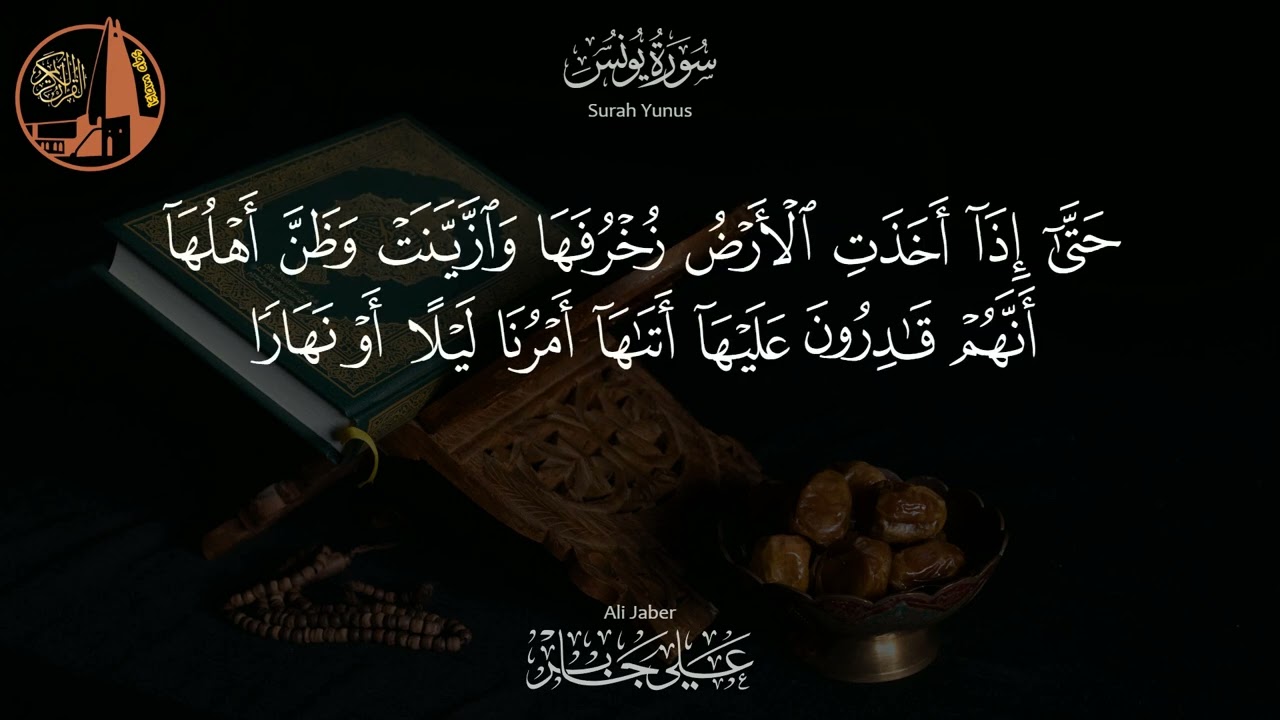 سُورَةُ يُونُسَ
Surah Yunus
القرآن الكريم
حَتَّىٰٓ إِذَآ أَخَذَتِ ٱلۡأَرۡضُ زُخۡرُفَهَا وَٱزَّيَّنَتۡ وَظَنَّ أَهۡلُهَآ
أَنَّهُمۡ قَٰدِرُونَ عَلَيۡهَآ أَتَىٰهَآ أَمۡرُنَا لَيۡلًا أَوۡ نَهَارٗا
Ali Jaber
علي جابر